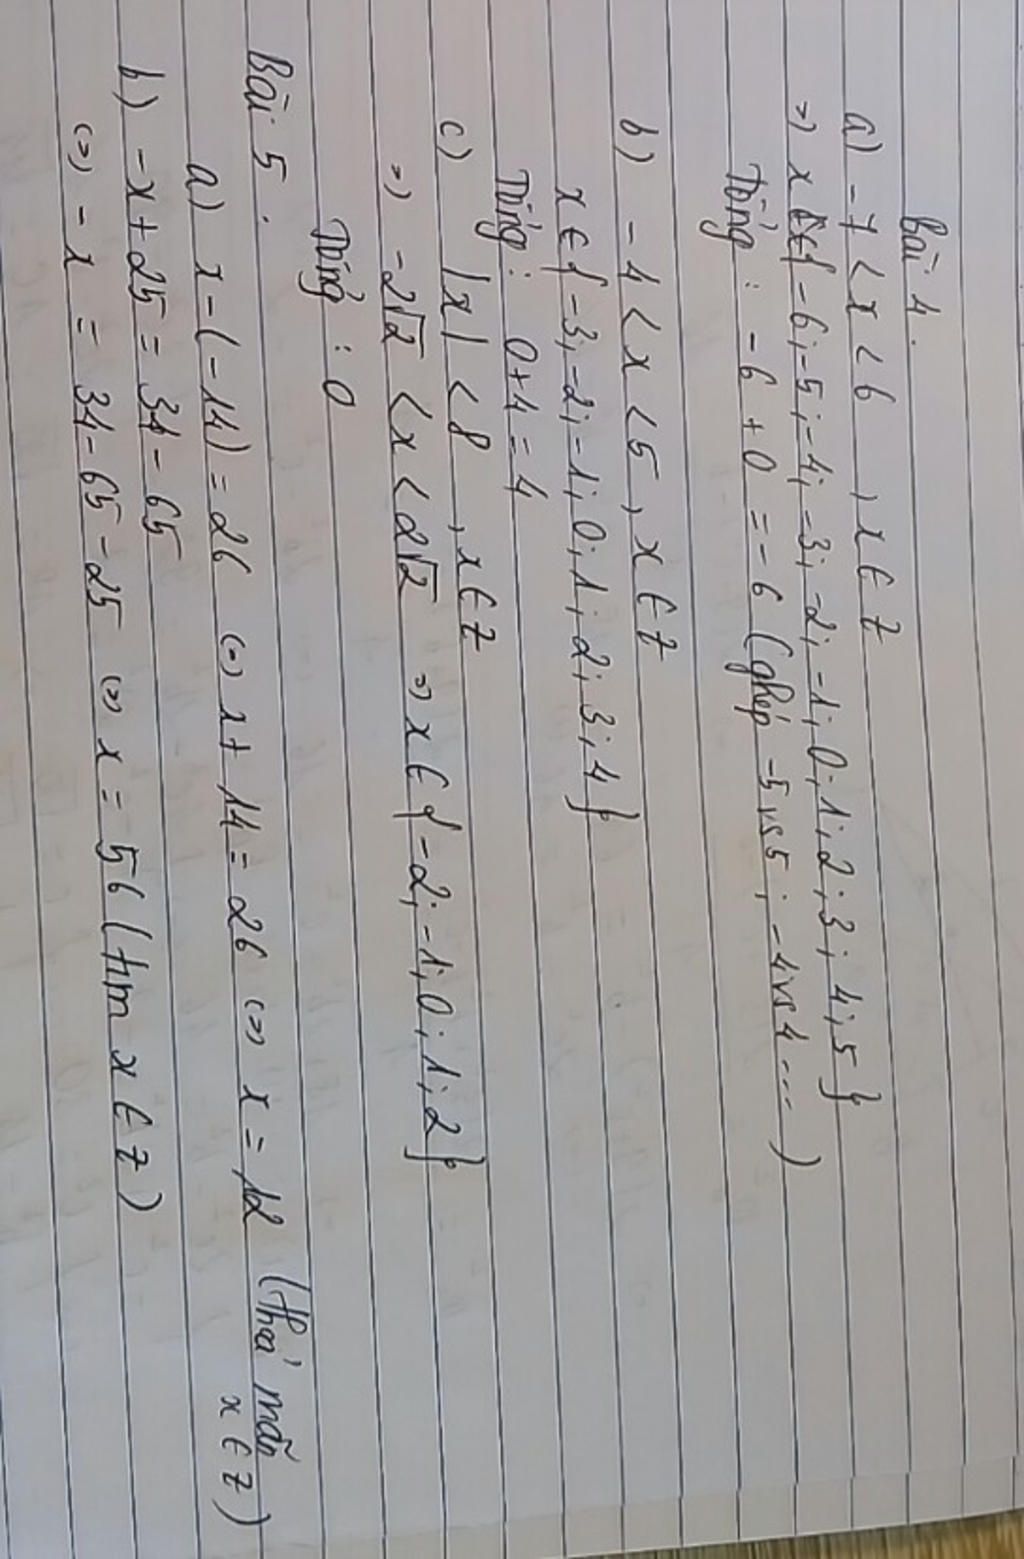 Bài 4.
a) -7 < x < 6 , x ∈ Z
=) x ∈ { -6; -5; -4; -3; -2; -1; 0; 1; 2; 3; 4; 5 }
Tổng : -6 + 0 = -6 (ghép -5 vs 5 ; -4 vs 4 ... )
b) -4 < x < 5 , x ∈ Z
x ∈ { -3; -2; -1; 0; 1; 2; 3; 4 }
Tổng : 0 + 4 = 4
c) |x| < 8 , x ∈ Z
=) -2√2 < x < 2√2 =) x ∈ { -2; -1; 0; 1; 2 }
Tổng : 0
Bài 5 :
a) x - (-14) = 26 (=) x + 14 = 26 (=) x = 12 (thoả mãn
x ∈ Z )
b) -x + 25 = 34 - 65
(=) -x = 34 - 65 - 25 (=) x = 56 ( t/m x ∈ Z )